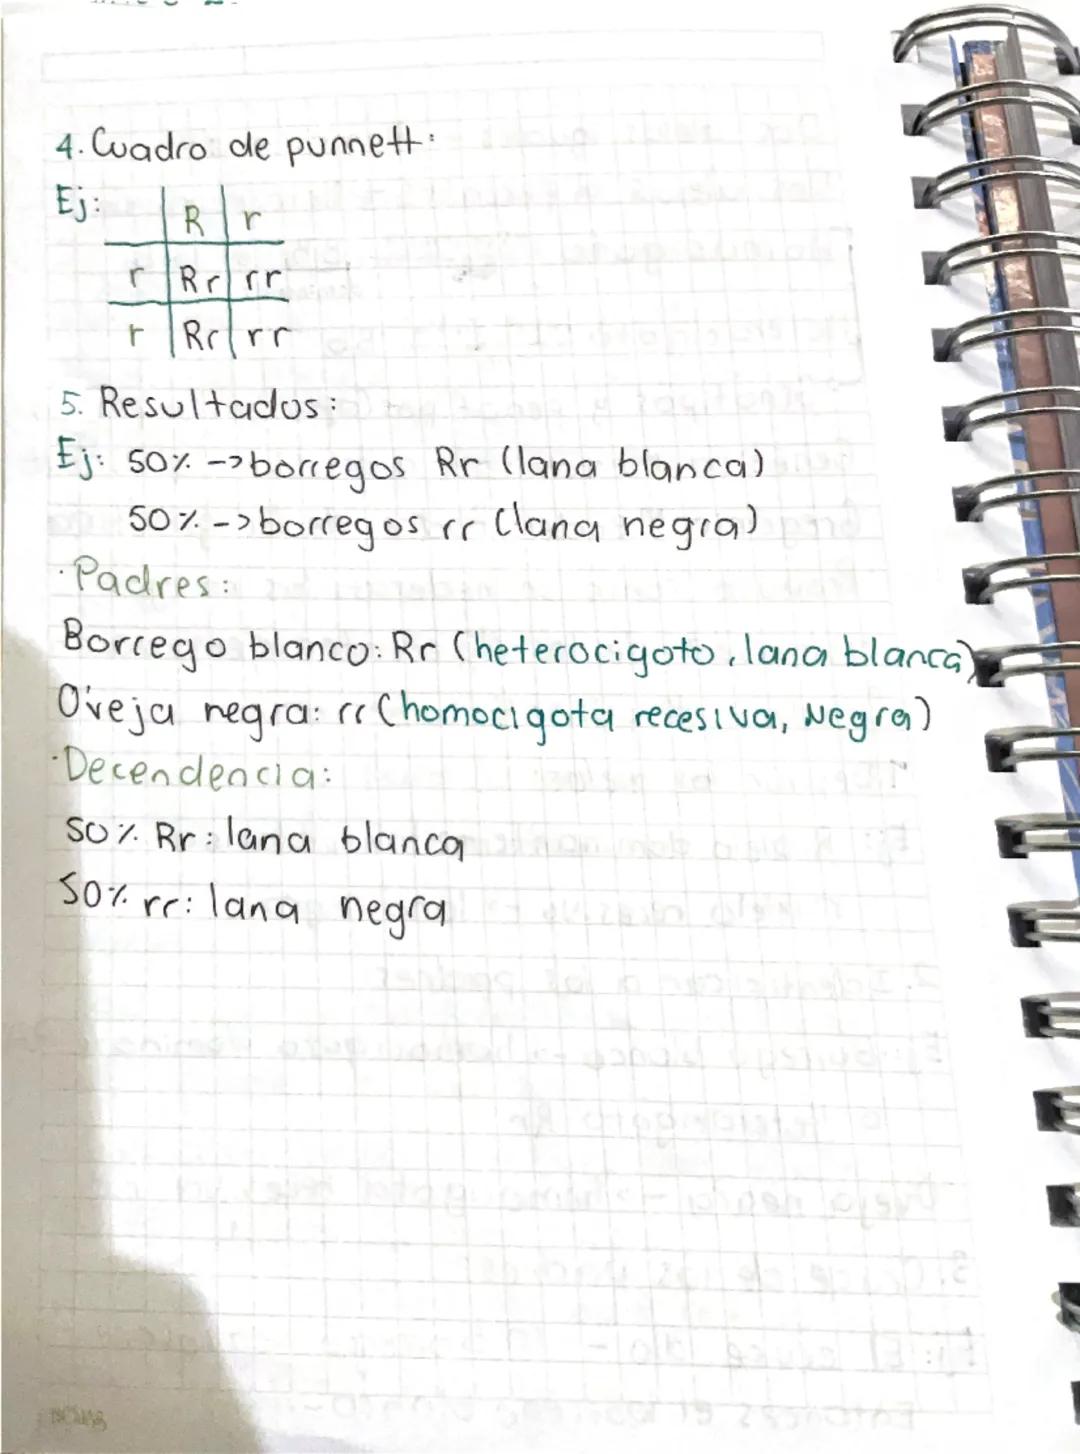 4. Cuadro de punnett:
Ej:
R r
r Rr rr
r Rr rr
5. Resultados:
Ej: 50% -> borregos Rr (lana blanca)
50% -> borregos rr (lana negra)
· Padres:
Borrego blanco: Rr (heterocigoto, lana blanca)
Oveja negra: rr (homocigota recesiva, Negra)
· Decendencia:
50% Rr: lana blanca
50% rr: lana negra